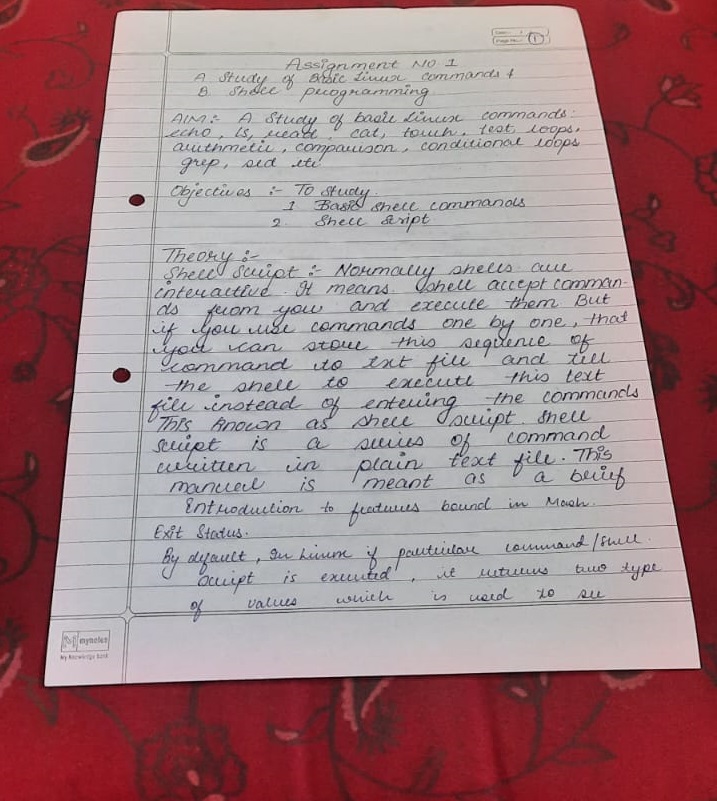 Date:-
Page No.:- 1
Assignment No 1
A. Study of Basic Linux commands &
B. Shell programming
AIM:- A Study of basic Linux commands:
echo, ls, read, cat, touch, test, loops,
arithmetic, comparison, conditional loops
grep, sed etc
Objectives :- To Study.
1 Basic shell commands
2. Shell Script
Theory:-
Shell Script :- Normally shells are
interactive. It means shell accept comman-
ds from you and execute them But
if you use commands one by one, that
you can store this sequence of
command to txt file and tell
the shell to execute this text
file instead of entering the commands
This known as shell script. Shell
script is a series of command
written in plain text file. This
manual is meant as a brief
Introduction to features bound in
Exit Status.
By default, In Linux if particular command/shell
script is executed, it returns two type
of values which is used to see
mynotes
My Knowledge Bank